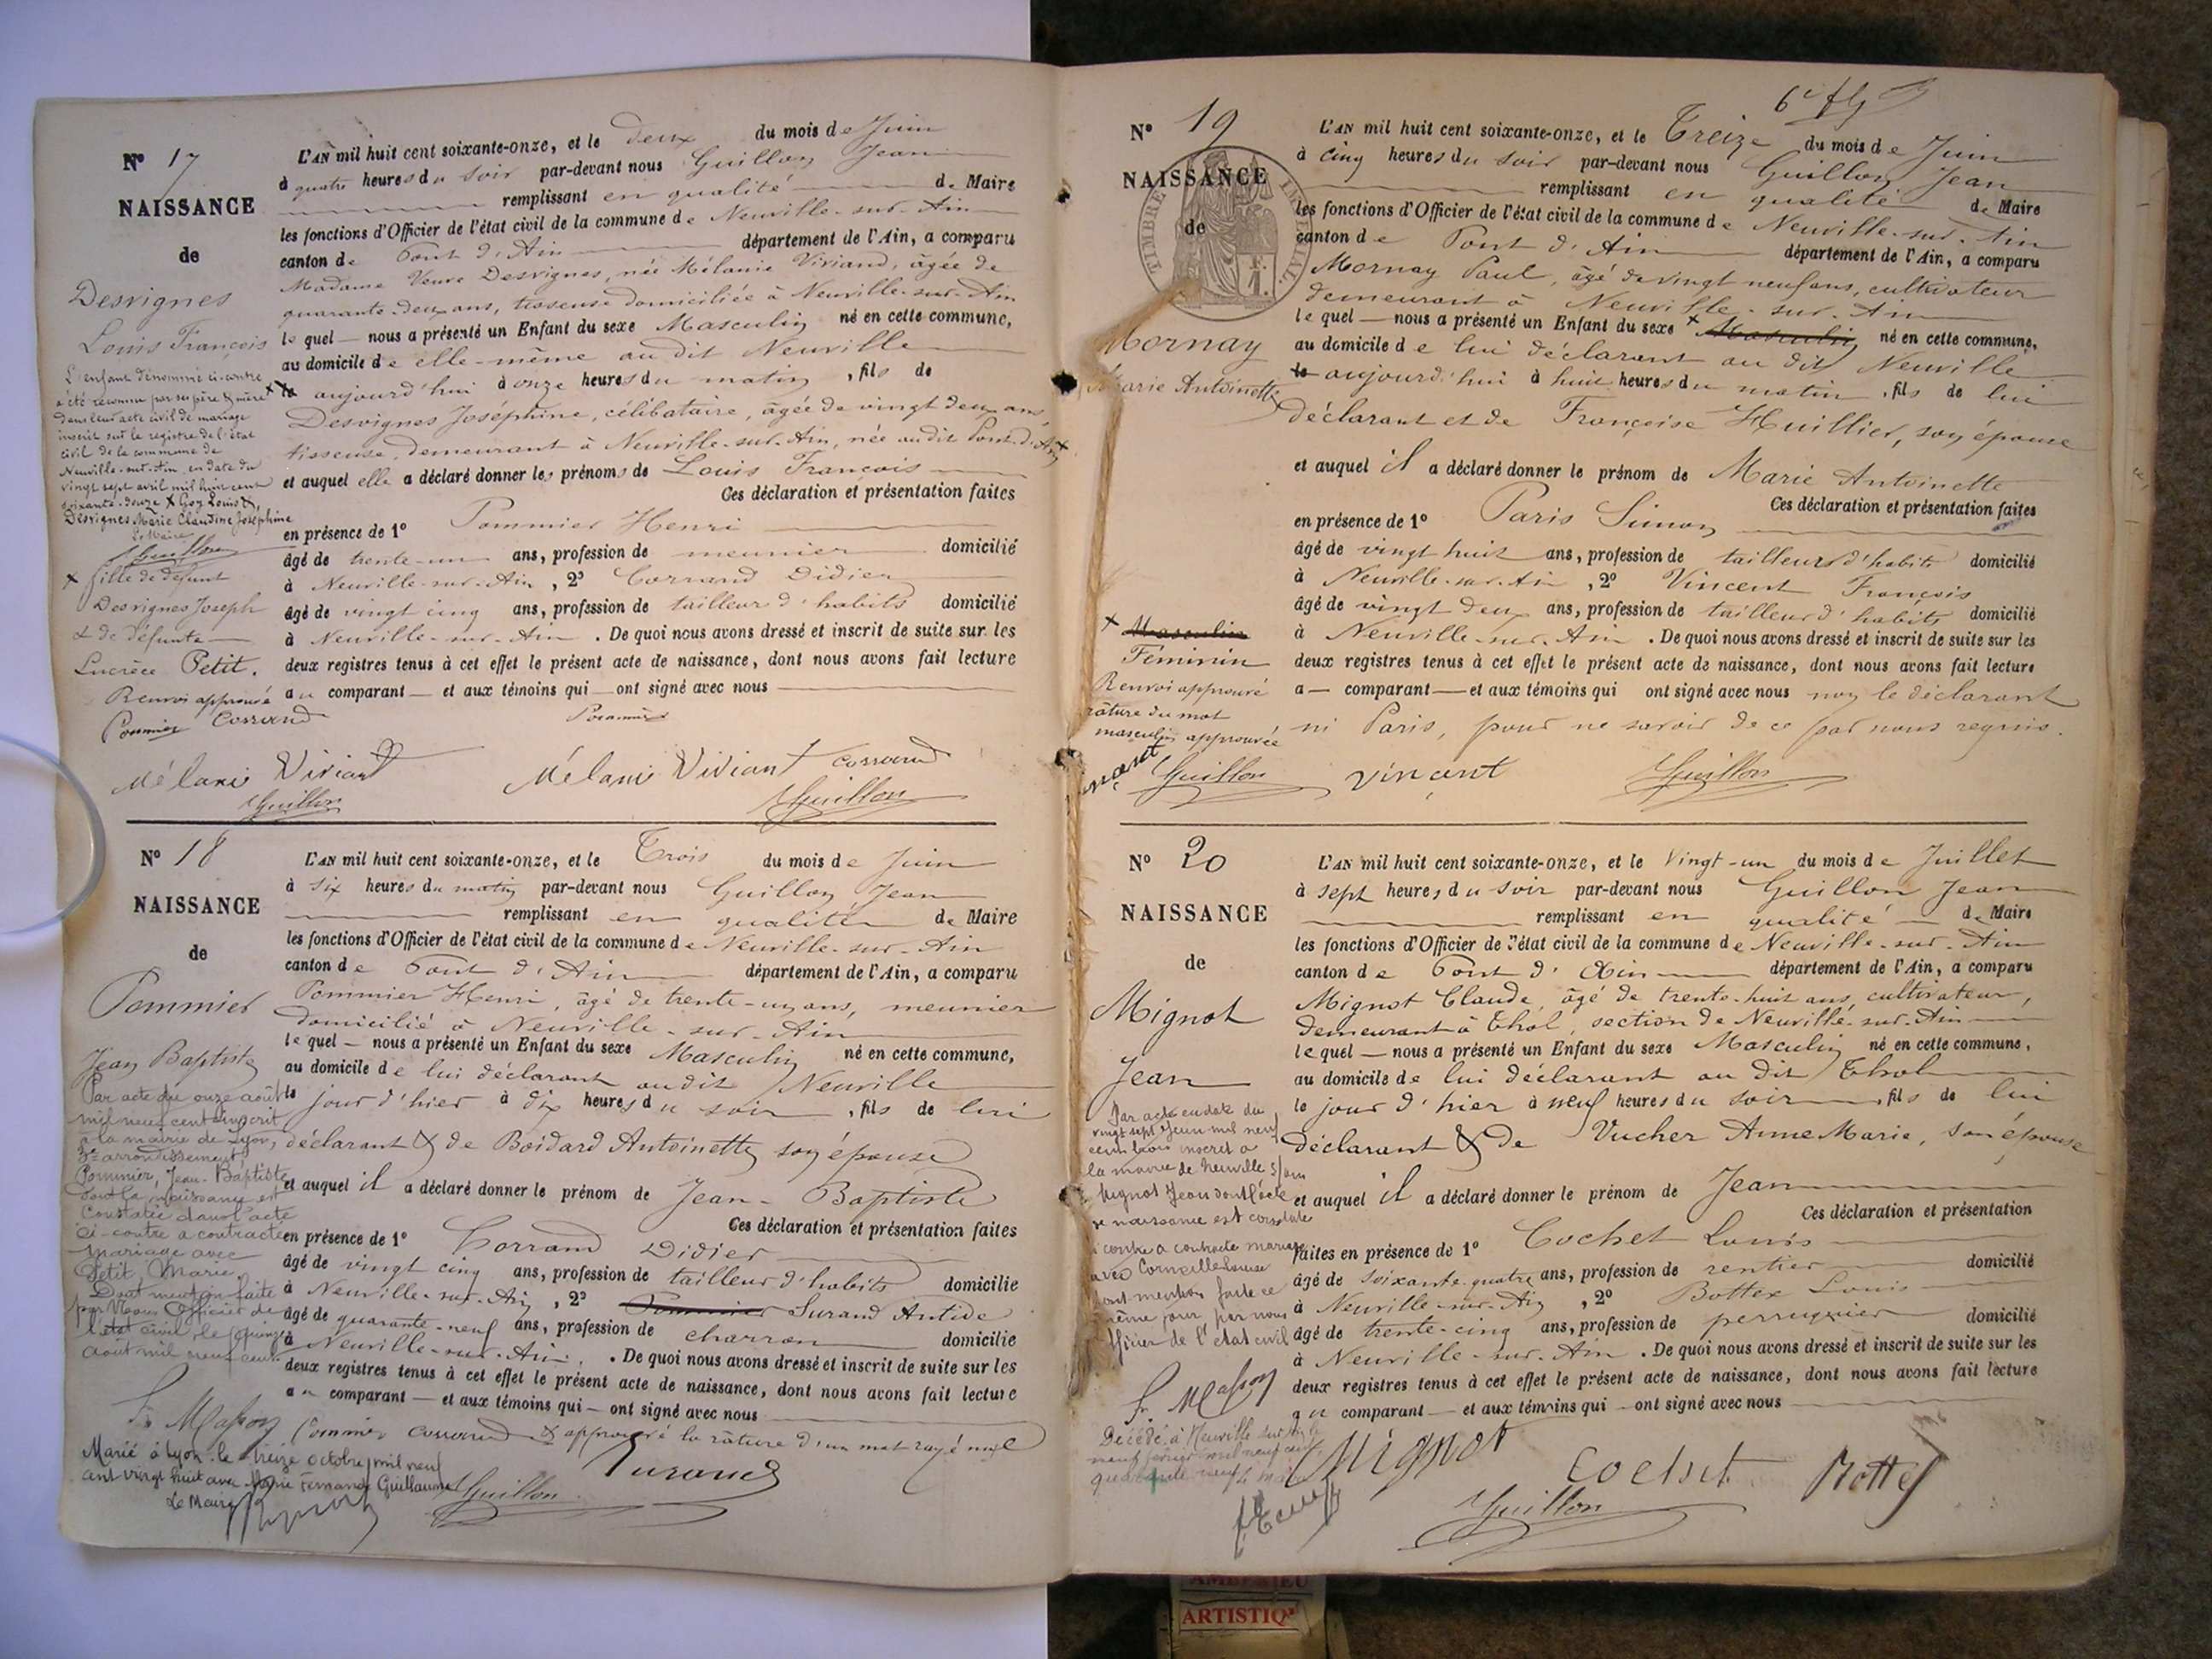 N° 17
NAISSANCE
de
Desvignes
Louis François
L'enfant dénommé ci-contre
a été reconnu par ses père & mère
dans leur acte civil de mariage
inscrit sur le registre de l'état
civil de la commune de
Neuville-sur-Ain en date du
vingt sept avril mil huit cent
soixante-douze x Goy Louis &
Desvignes Marie Claudine Joséphine
Le Maire
Guillon
x fille de défunt
Desvignes Joseph
& de défunte
Lucrèce Petit.
Renvoi approuvé
Pommier Corrand
Mélanie Viviant
Guillon
L'AN mil huit cent soixante-onze, et le deux du mois de Juin
à quatre heures du soir par-devant nous Guillon Jean
remplissant en qualité de Maire
les fonctions d'Officier de l'état civil de la commune de Neuville-sur-Ain
canton de Pont d'Ain département de l'Ain, a comparu
Madame Veuve Desvignes, née Mélanie Viviand, âgée de
quarante-deux ans, tisseuse domiciliée à Neuville-sur-Ain
le quel nous a présenté un Enfant du sexe Masculin né en cette commune,
au domicile de elle-même au dit Neuville
aujourd'hui à onze heures du matin, fils de
Desvignes Joséphine, célibataire, âgée de vingt deux ans
tisseuse, demeurant à Neuville-sur-Ain, née au dit Pont-d'Ain x
et auquel elle a déclaré donner les prénoms de Louis François
Ces déclaration et présentation faites
en présence de 1° Pommier Henri
âgé de trente-un ans, profession de meunier domicilié
à Neuville-sur-Ain, 2° Corrand Didier
âgé de vingt cinq ans, profession de tailleur d'habits domicilié
à Neuville-sur-Ain. De quoi nous avons dressé et inscrit de suite sur les
deux registres tenus à cet effet le présent acte de naissance, dont nous avons fait lecture
au comparant et aux témoins qui ont signé avec nous
Pommier
Mélanie Viviant Corrand
Guillon
N° 18
NAISSANCE
de
Pommier
Jean Baptiste
Par acte du onze août
mil neuf cent inscrit
à la mairie de Lyon,
3e arrondissement
Pommier, Jean-Baptiste
dont la naissance est
constatée dans l'acte
ci-contre a contracté
mariage avec
Petit, Marie
Dont mention faite
par Nous Officier de
l'état civil, le quinze
août mil neuf cent.
Fr. Masson
Marié à Lyon le treize octobre mil neuf
cent vingt huit avec Marie Fernande Guillaume
Le Maire
L'AN mil huit cent soixante-onze, et le Trois du mois de Juin
à six heures du matin par-devant nous Guillon Jean
remplissant en qualité de Maire
les fonctions d'Officier de l'état civil de la commune de Neuville-sur-Ain
canton de Pont d'Ain département de l'Ain, a comparu
Pommier Henri, âgé de trente-un ans, meunier
domicilié à Neuville-sur-Ain
le quel nous a présenté un Enfant du sexe Masculin né en cette commune,
au domicile de lui déclarant audit Neuville
le jour d'hier à dix heures du soir, fils de lui
déclarant & de Boidard Antoinette son épouse
et auquel il a déclaré donner le prénom de Jean-Baptiste
Ces déclaration et présentation faites
en présence de 1° Corrand Didier
âgé de vingt cinq ans, profession de tailleur d'habits domicilié
à Neuville-sur-Ain, 2° Pommier Surand Antide
âgé de quarante-neuf ans, profession de charron domicilié
à Neuville-sur-Ain. De quoi nous avons dressé et inscrit de suite sur les
deux registres tenus à cet effet le présent acte de naissance, dont nous avons fait lecture
au comparant et aux témoins qui ont signé avec nous
Pommier Corrand & approuvé la râture d'un mot rayé nul
Surand
Guillon
N° 19
NAISSANCE
de
TIMBRE IMPERIAL
Mornay
Marie Antoinette
x Masculin
Féminin
Renvoi approuvé
râture du mot
masculin approuvée
Vincent
Guillon
L'AN mil huit cent soixante-onze, et le Treize du mois de Juin
à cinq heures du soir par-devant nous Guillon Jean
remplissant en qualité de Maire
les fonctions d'Officier de l'état civil de la commune de Neuville-sur-Ain
canton de Pont d'Ain département de l'Ain, a comparu
Mornay Paul, âgé de vingt neuf ans, cultivateur
demeurant à Neuville-sur-Ain
le quel nous a présenté un Enfant du sexe x Masculin né en cette commune,
au domicile de lui déclarant au dit Neuville
le aujourd'hui à huit heures du matin, fils de lui
déclarant et de Françoise Huillier, son épouse
et auquel il a déclaré donner le prénom de Marie Antoinette
Ces déclaration et présentation faites
en présence de 1° Paris Simon
âgé de vingt huit ans, profession de tailleurs d'habits domicilié
à Neuville-sur-Ain, 2° Vincent François
âgé de vingt deux ans, profession de tailleur d'habits domicilié
à Neuville-sur-Ain. De quoi nous avons dressé et inscrit de suite sur les
deux registres tenus à cet effet le présent acte de naissance, dont nous avons fait lecture
a comparant et aux témoins qui ont signé avec nous non le déclarant
ni Paris, pour ne savoir de ce par nous requis.
Vincent
Guillon
N° 20
NAISSANCE
de
Mignot
Jean
Par acte en date du
vingt sept Juin mil neuf
cent trois inscrit à
la mairie de Neuville s/ain
Mignot Jean dont l'acte
de naissance est constaté
ci contre a contracté mariage
avec Corneille Louise
dont mention faite ce
même jour par nous
officier de l'état civil
Fr. Masson
Décédé à Neuville sur Ain le
neuf février mil neuf cent
quarante neuf
L'AN mil huit cent soixante-onze, et le Vingt-un du mois de Juillet
à sept heures du soir par-devant nous Guillon Jean
remplissant en qualité de Maire
les fonctions d'Officier de l'état civil de la commune de Neuville-sur-Ain
canton de Pont d'Ain département de l'Ain, a comparu
Mignot Claude, âgé de trente-huit ans, cultivateur,
demeurant à Thol, section de Neuville-sur-Ain
le quel nous a présenté un Enfant du sexe Masculin né en cette commune,
au domicile de lui déclarant au dit Thol
le jour d'hier à neuf heures du soir, fils de lui
déclarant & de Vucher Anne Marie, son épouse
et auquel il a déclaré donner le prénom de Jean
Ces déclaration et présentation
faites en présence de 1° Cochet Louis
âgé de soixante-quatre ans, profession de rentier domicilié
à Neuville-sur-Ain, 2° Bottex Louis
âgé de trente-cinq ans, profession de perruquier domicilié
à Neuville-sur-Ain. De quoi nous avons dressé et inscrit de suite sur les
deux registres tenus à cet effet le présent acte de naissance, dont nous avons fait lecture
au comparant et aux témoins qui ont signé avec nous
Mignot Cochet Bottex
Guillon
AMBERIEU
ARTISTIQ